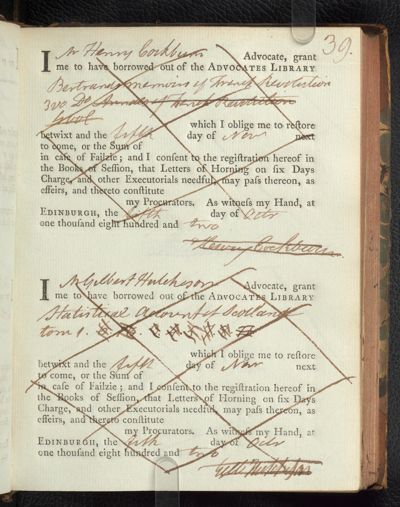 39.
I Mr Henry Cockburn Advocate, grant
me to have borrowed out of the ADVOCATES LIBRARY
Bertrands memoirs of French Revolution
3 vo Do Annals of French Revolution
which I oblige me to reſtore
betwixt and the fifth day of Nov next
to come, or the Sum of
in caſe of Failzie; and I conſent to the regiſtration hereof in
the Books of Seſſion, that Letters of Horning on ſix Days
Charge, and other Executorials needful, may paſs thereon, as
effeirs, and thereto conſtitute
my Procurators. As witneſs my Hand, at
EDINBURGH, the fifth day of Octr
one thouſand eight hundred and two
Henry Cockburn
I Mr Gilbert Hutcheson Advocate, grant
me to have borrowed out of the ADVOCATES LIBRARY
Statistical Account of Scotland
tom 1.
which I oblige me to reſtore
betwixt and the fifth day of Nov next
to come, or the Sum of
in caſe of Failzie; and I conſent to the regiſtration hereof in
the Books of Seſſion, that Letters of Horning on ſix Days
Charge, and other Executorials needful, may paſs thereon, as
effeirs, and thereto conſtitute
my Procurators. As witneſs my Hand, at
EDINBURGH, the fifth day of Octr
one thouſand eight hundred and two